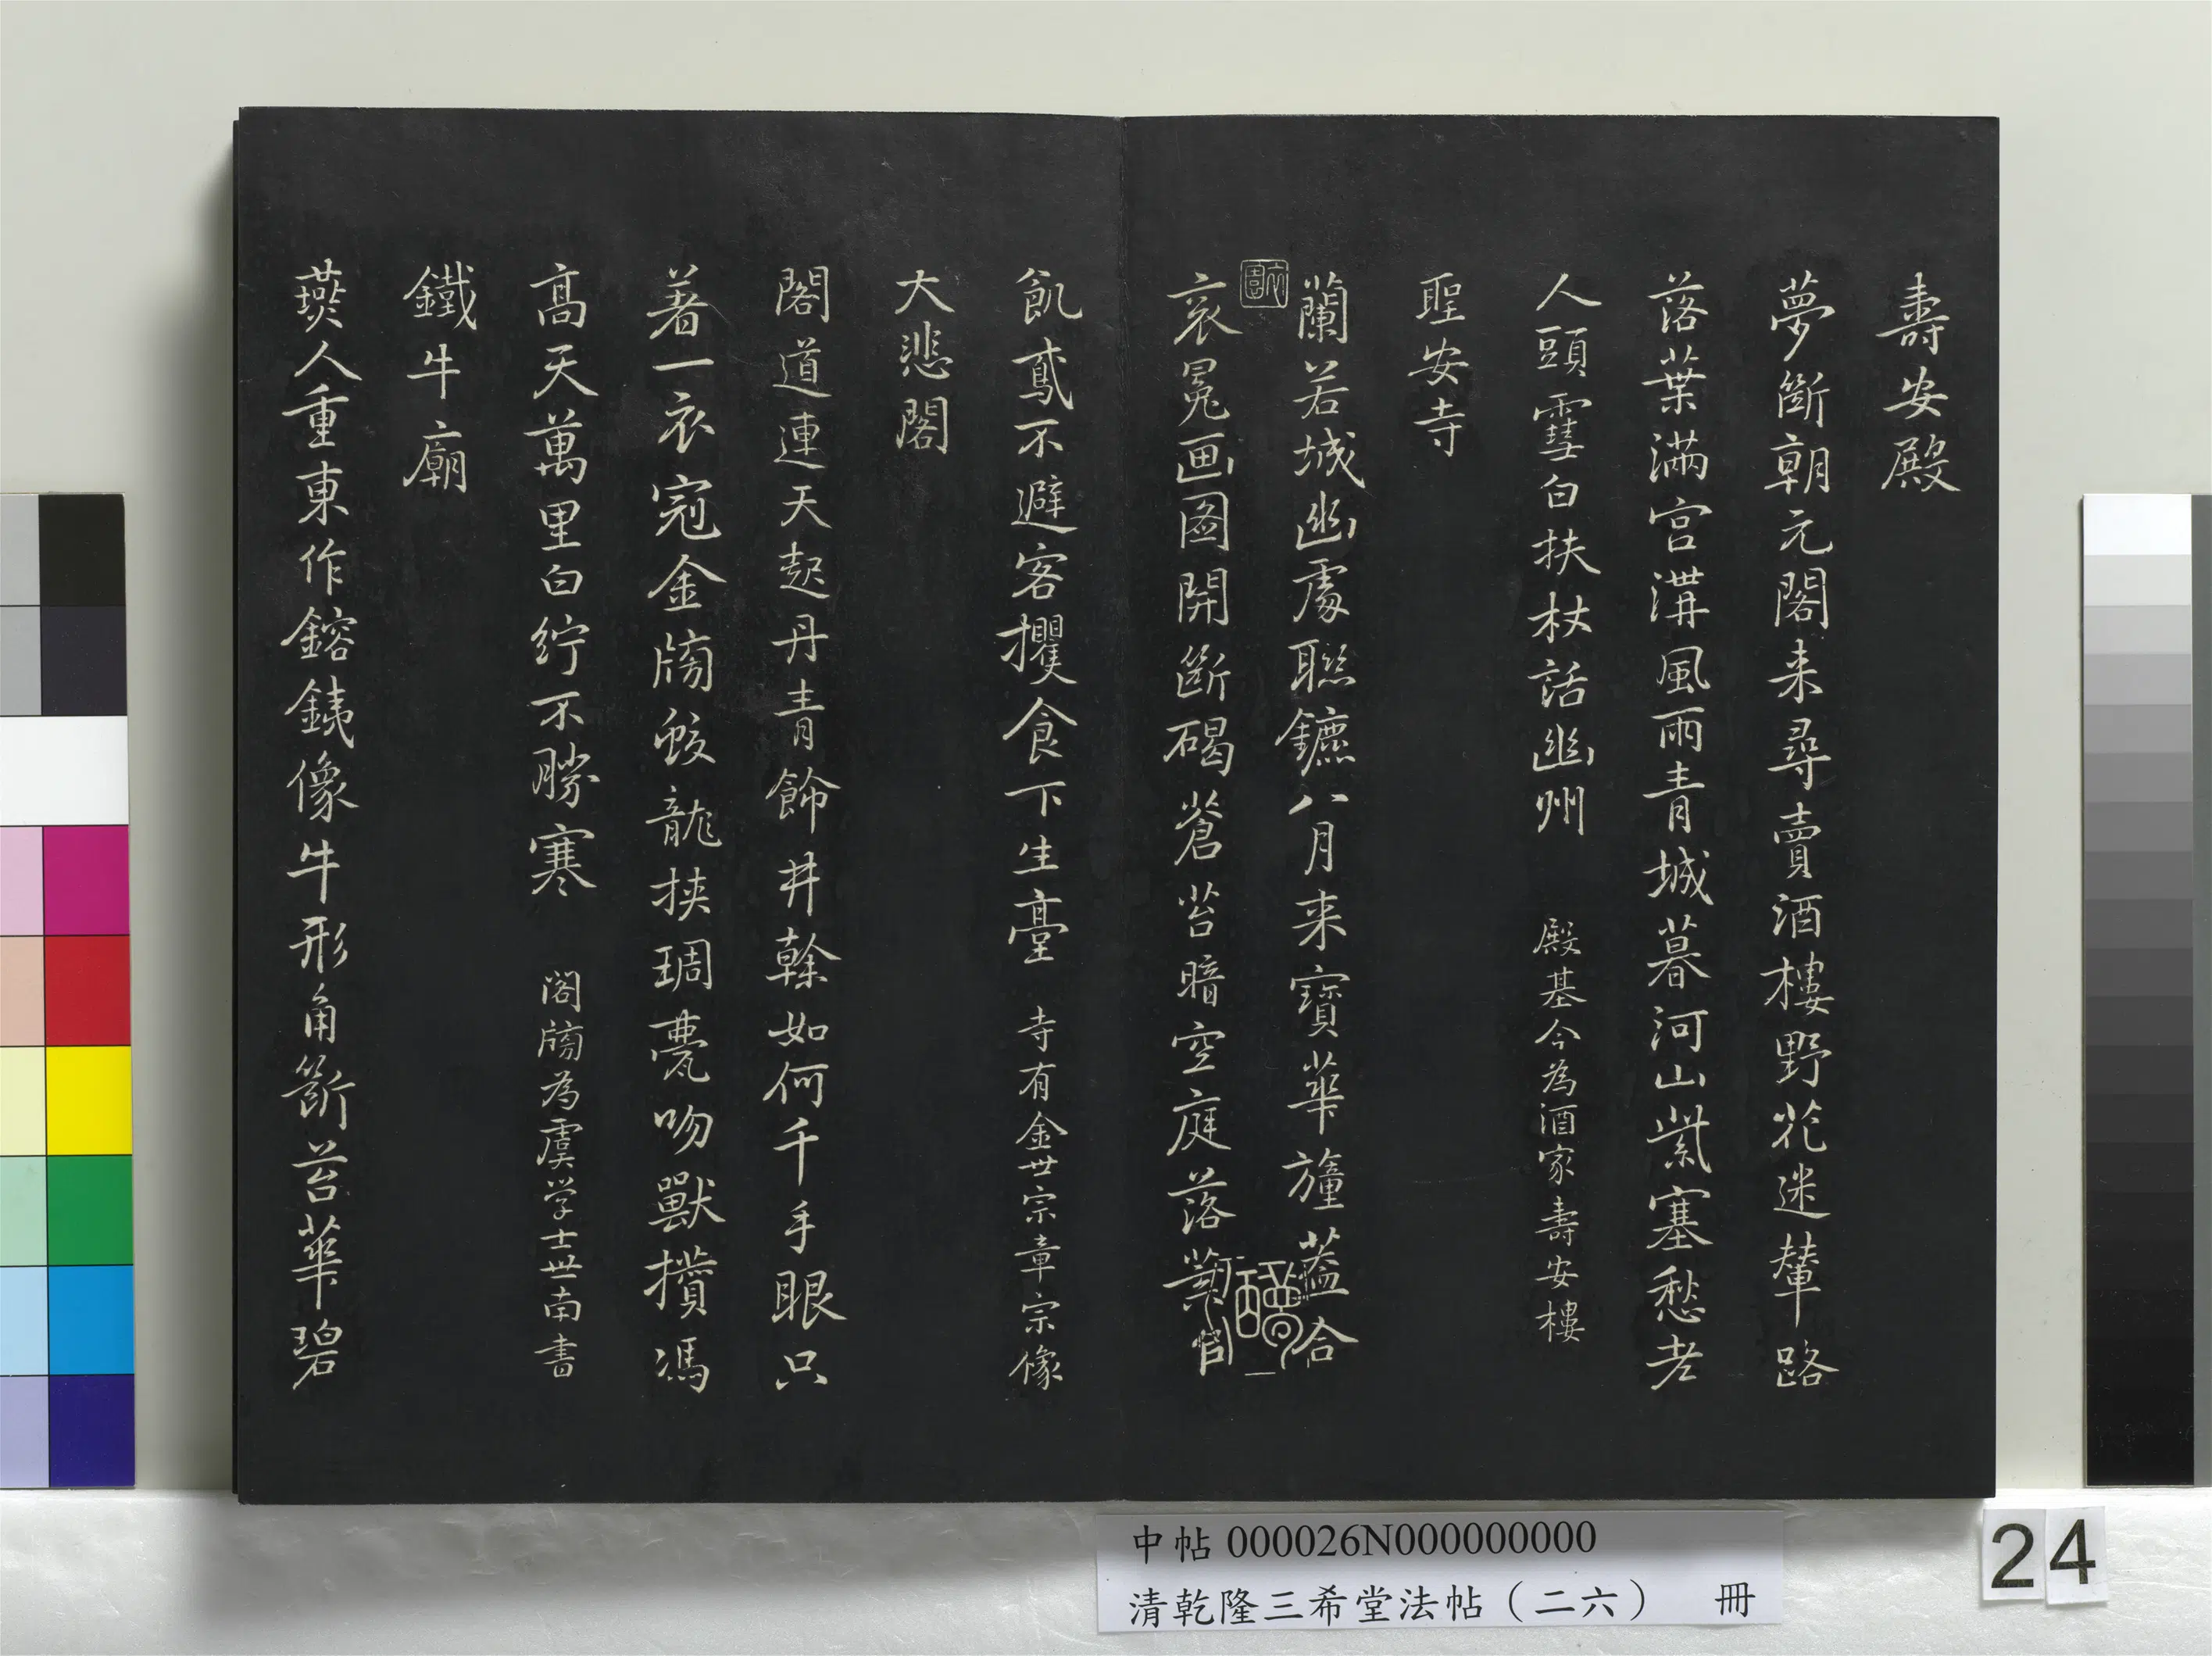 壽安殿
夢斷朝元閣来尋賣酒樓野花迷輦路
落葉滿宫溝風雨青城暮河山紫塞愁老
人頭雪白扶杖話幽州 殿基今為酒家壽安樓
聖安寺
蘭若城幽處聯鑣八月来寶華幢蓋合
衮冕画圖開斷碣蒼苔暗空庭落葉
飢鳶不避客攫食下生臺 寺有金世宗章宗像
大悲閣
閣道連天起丹青飾井榦如何千手眼只
著一衣冠金牓蛟龍挾琱甍吻獸攢馮
高天萬里白紵不勝寒 閣牓為虞学士世南書
鐵牛廟
燕人重東作鎔銕像牛形角斷苔華碧
中帖 000026N000000000
清乾隆三希堂法帖（二六） 冊
24